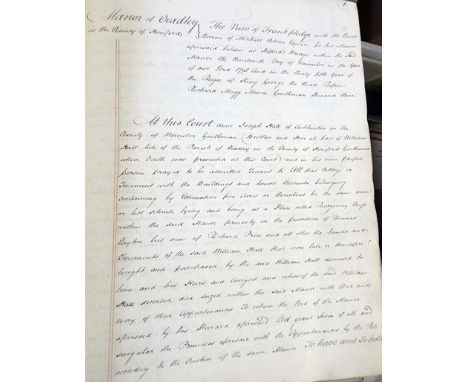 1.
Manor of Cradley
in the County of Hereford
The View of Frankpledge with the Court
Baron of Michael Esquire for his Manor
aforesaid holden at Bridge within the said
Manor the Nineteenth Day of November in the Year
of our Lord 1794 And in the thirty fifth Year of
the Reign of King George the third Before
Richard Gentleman Steward there
At this Court came Joseph Hall of in the
County of Worcester Gentleman Brother and Heir at Law of William
Hall late of the Parish of Cradley in the County of Hereford Gentleman
whose Death was presented at this Court) and in his own proper
person prayed to be admitted Tenant to All that Cottage or
Tenement with the Buildings and Lands thereunto belonging
containing by Estimation five Acres or thereabout be the same more
or less situate lying and being at a Place called
within the said Manor formerly in the Possession of Thomas
but now of Richard Price and all other the Lands and
Tenements of the said William Hall that were late a
bought and purchased by the said William Hall deceased to
him and his Heirs and Assigns and whereof the said William
Hall deceased died seized within the said Manor with their and
every of their Appurtenances To whom the Lord of the Manor
aforesaid by his Steward aforesaid Did grant Seizin of all and
singular the Premises aforesaid with the Appurtenances by the Rod
according to the Custom of the same Manor To have and To hold